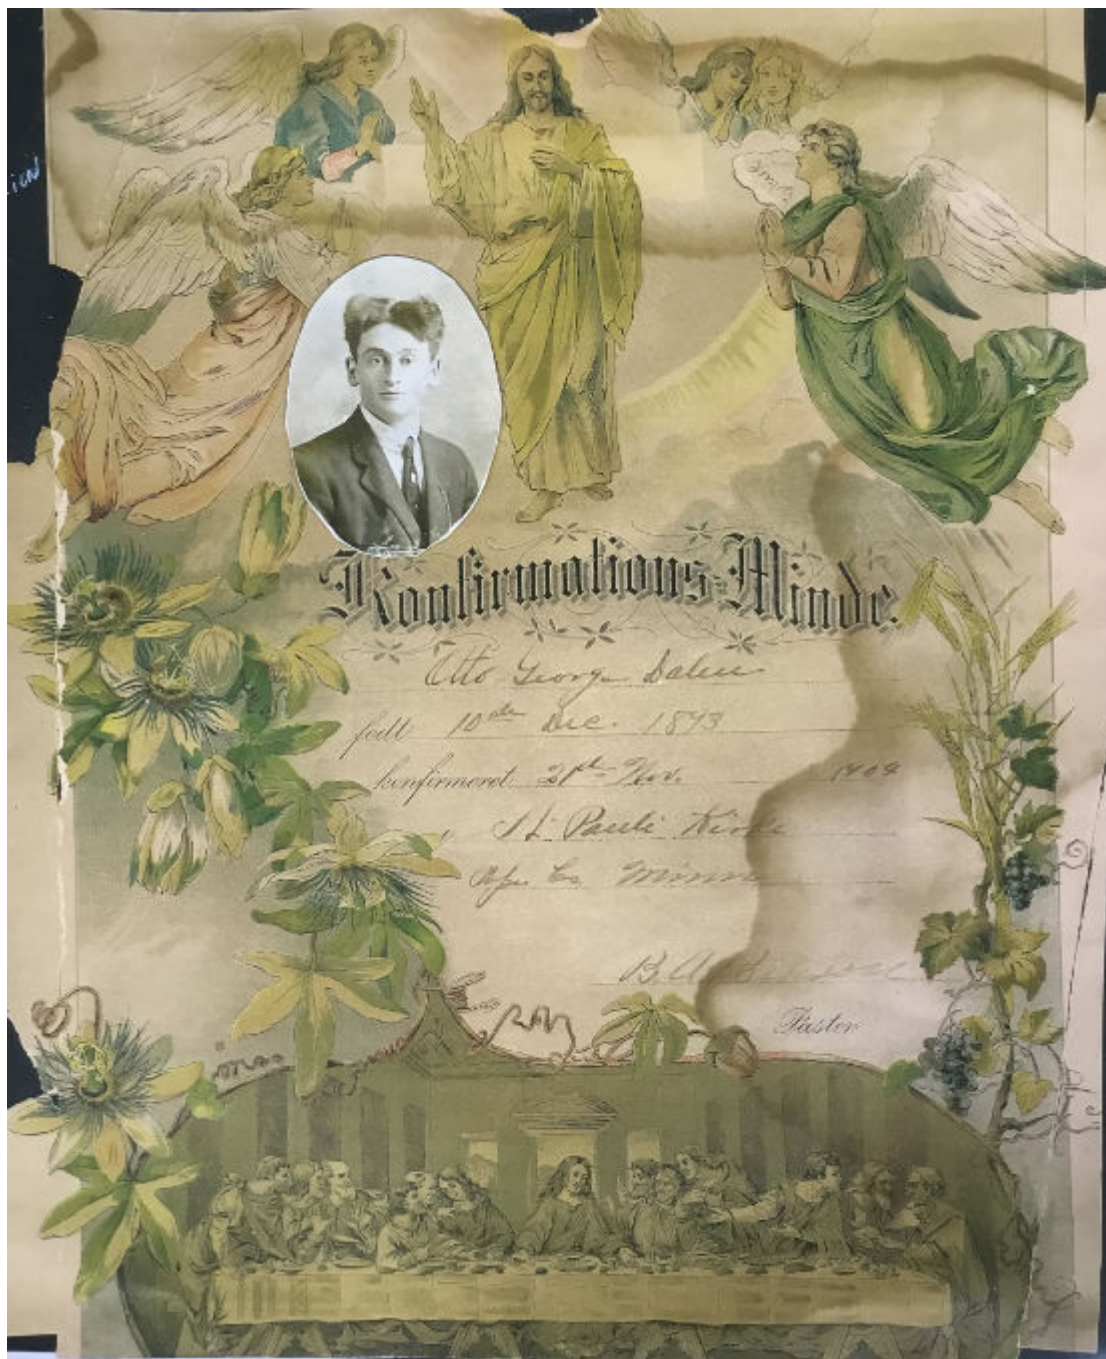 Konfirmations-Minde.
Otto George Dalen
født 10de Dec. 1893
konfirmeret 21st Nov. 1909
i St Pauli Kirke
Pope Co, Minn
B. A.
Pastor